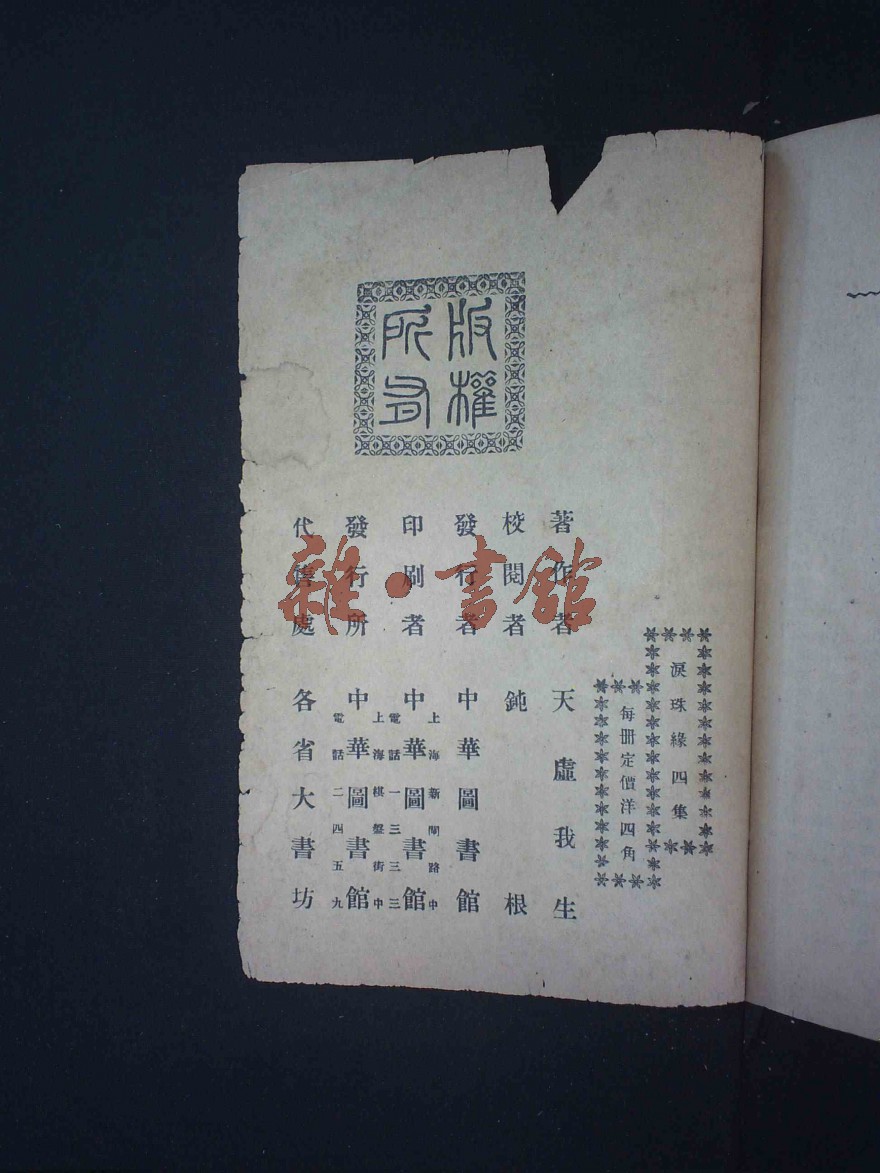 版權
所有
淚珠緣四集
每册定價洋四角
著作者 天虛我生
校閱者 鈍根
發行者 中華圖書館
上海新閘路中
印刷者 中華圖書館
電話一三三三
上海棋盤街中
發行所 中華圖書館
電話二四五九
代售處 各省大書坊
雜·書館